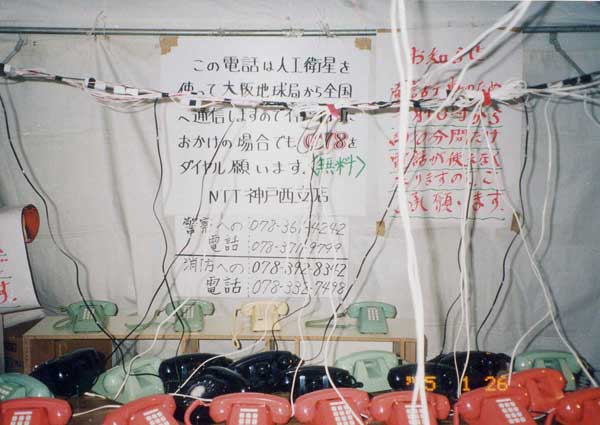 この電話は人工衛星を
使って大阪地球局から全国
へ通信しますので
おかけの場合でも078を
ダイヤル願います。〈無料〉
NTT神戸西支店
警察への 078-361-4242
電話 078-371-9799
消防への 078-392-8342
電話 078-332-7498
お知らせ
のため
から
分間だけ
電話が使えなく
なりますのでご
了承願います。
す。
'95 1 26